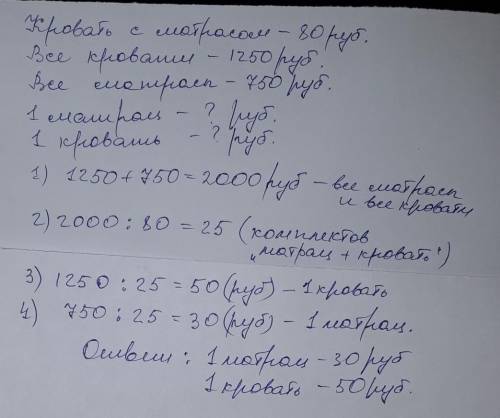 Кровать с матрасом – 80 руб.
Все кровати – 1250 руб.
Все матрасы – 750 руб.
1 матрац – ? руб.
1 кровать – ? руб.
1) 1250 + 750 = 2000 руб – все матрасы
и все кровати
2) 2000 : 80 = 25 (комплектов
„матрац + кровать")
3) 1250 : 25 = 50 (руб) – 1 кровать
4) 750 : 25 = 30 (руб) – 1 матрац.
Ответ : 1 матрац – 30 руб
1 кровать – 50 руб.